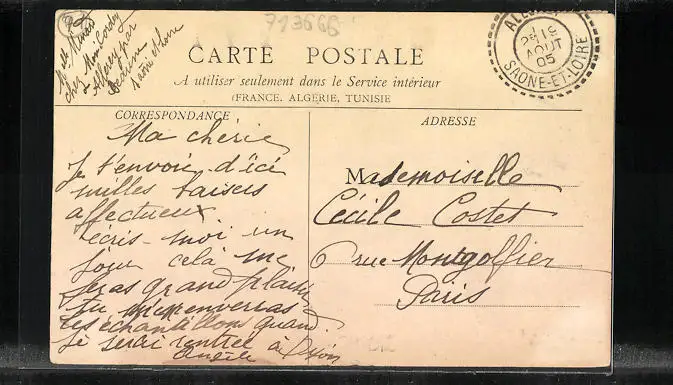 713666
chez Moi
par
CARTE POSTALE
A utiliser seulement dans le Service intérieur
(FRANCE, ALGERIE, TUNISIE
ALL
19
AOUT
05
SAONE-ET-LOIRE
CORRESPONDANCE
Ma chérie
Je t'envoie d'ici
milles baisers
affectueux.
écris-moi un
jour celà me
feras grand plaisir
tu m'enverras
tes échantillons quand
je serai rentrée à
ADRESSE
Mademoiselle
Cécile Costet
6 rue Montgolfier
Paris